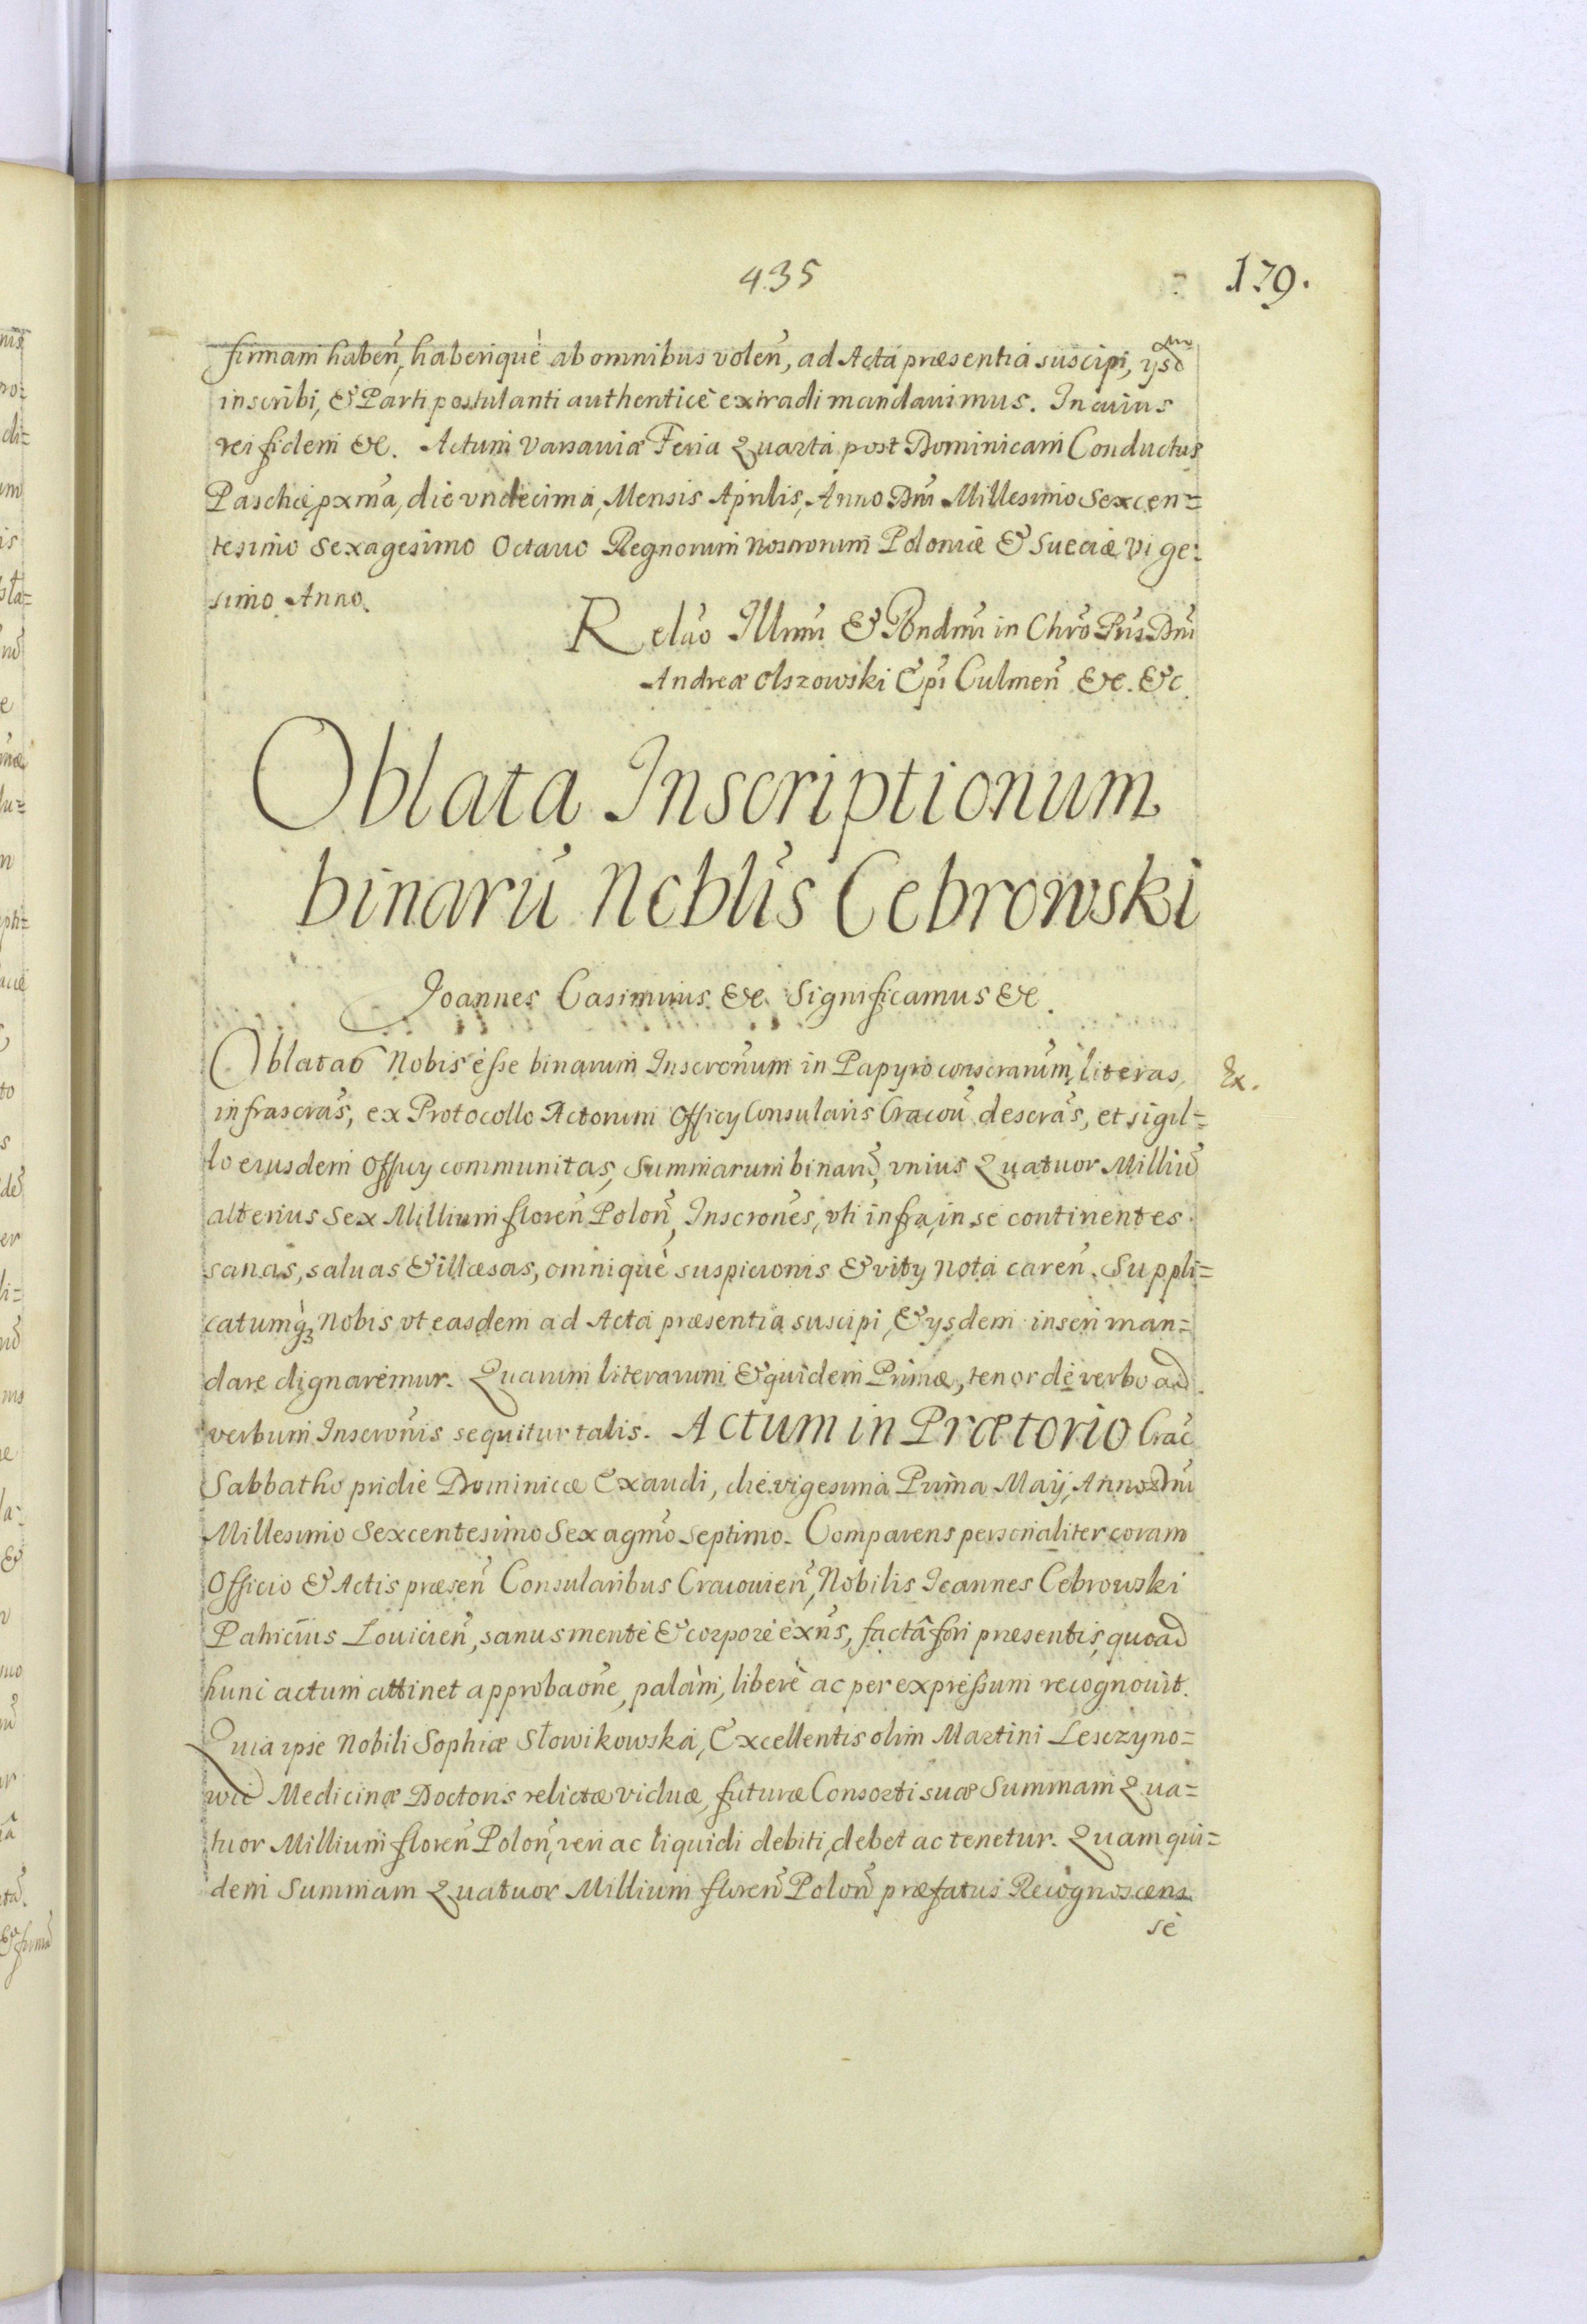 435
179.
firmam haben̄, haberiquè ab omnibus volen̄, ad Acta præsentia suscipi, ysd
inscribi, & Parti postulanti authenticè extradi mandauimus. In cuius
rei fidem &c. Actum Varsauiæ Feria Quarta post Dominicam Conductus
Paschæ pxma, die vndecima, Mensis Aprilis, Anno Dni Millesimo Sexcen=
tesimo Sexagesimo Octauo Regnorum nostrorum Poloniæ & Sueciæ Vige:
simo Anno.
Relao Illmi & Rndmi in Chro Pris Dni
Andreæ Olszowski Epi Culmen̄ &c. &c.
Oblata Inscriptionum
binarū Noblis Cebrowski
Joannes Casimirus &c. Significamus &c.
Oblatas Nobis esse binarum Inscronum in Papyro conscrarum, literas,
infrascras, ex Protocollo Actorum Officy Consularis Cracou descras, et sigil=
lo eiusdem Officy communitas, Summarum binarū, vnius Quatuor Milliū
alterius Sex Millium floren̄ Polon̄, Inscrones, vti infra, in se continentes
sanas, saluas & illæsas, omniquè suspicionis & vity nota caren̄. Suppli=
catumq́ꝫ Nobis vt easdem ad Acta præsentia suscipi, & ysdem inseri man=
dare dignaremur. Quarum literarum & quidem Primæ, tenor de verbo ad
verbum Inscronis sequitur talis. Actum in Prætorio Crac
Sabbatho pridie Dominicæ Exaudi, die vigesima Prima Maÿ, Anno Dni
Millesimo Sexcentesimo Sexagmo Septimo. Comparens personaliter coram
Officio & Actis præsen̄ Consularibus Cracouien̄, Nobilis Joannes Cebrowski
Patricius Louicien̄, sanus mente & corpore exn̄s, factâ fori præsentis, quoad
hunc actum attinet approbaone, palàm, liberè ac per expressum recognouit.
Quia ipse Nobili Sophiæ Słowikowska, Excellentis olim Martini Lesczyno=
wic Medicinæ Doctoris relictæ viduæ, futuræ Consorti suæ Summam Qua=
tuor Millium floren̄ Polon̄, veri ac liquidi debiti, debet ac tenetur. Quam qui=
dem Summam Quatuor Millium floren̄ Polon̄ præfatus Recognoscens
se
Ex.